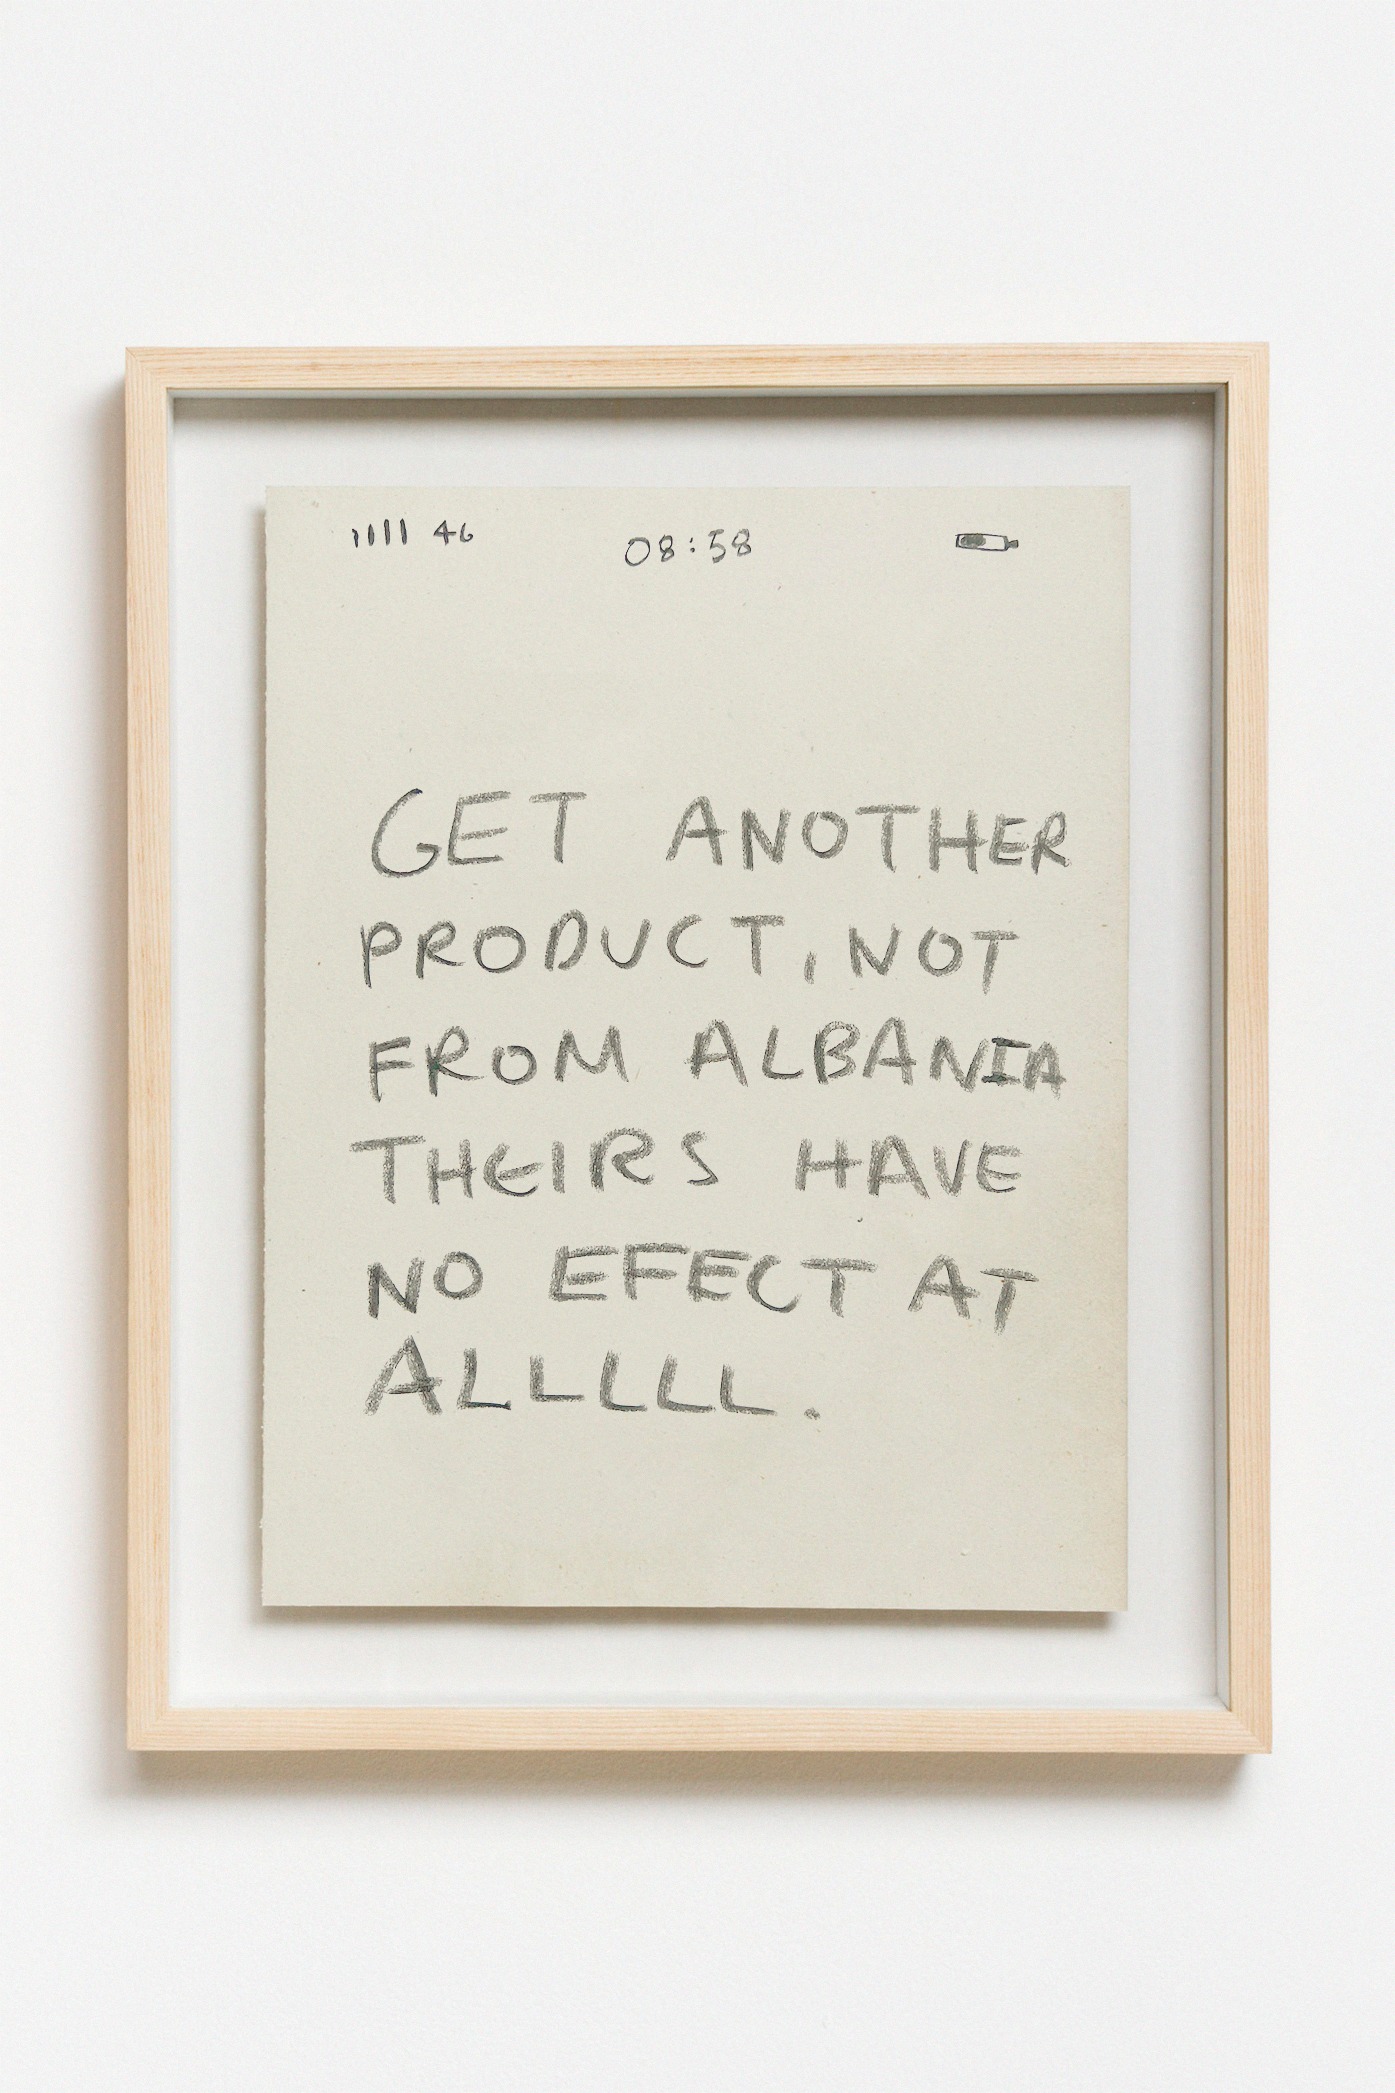 46 08:58
GET ANOTHER
PRODUCT, NOT
FROM ALBANIA
THEIRS HAVE
NO EFECT AT
ALLLLL.